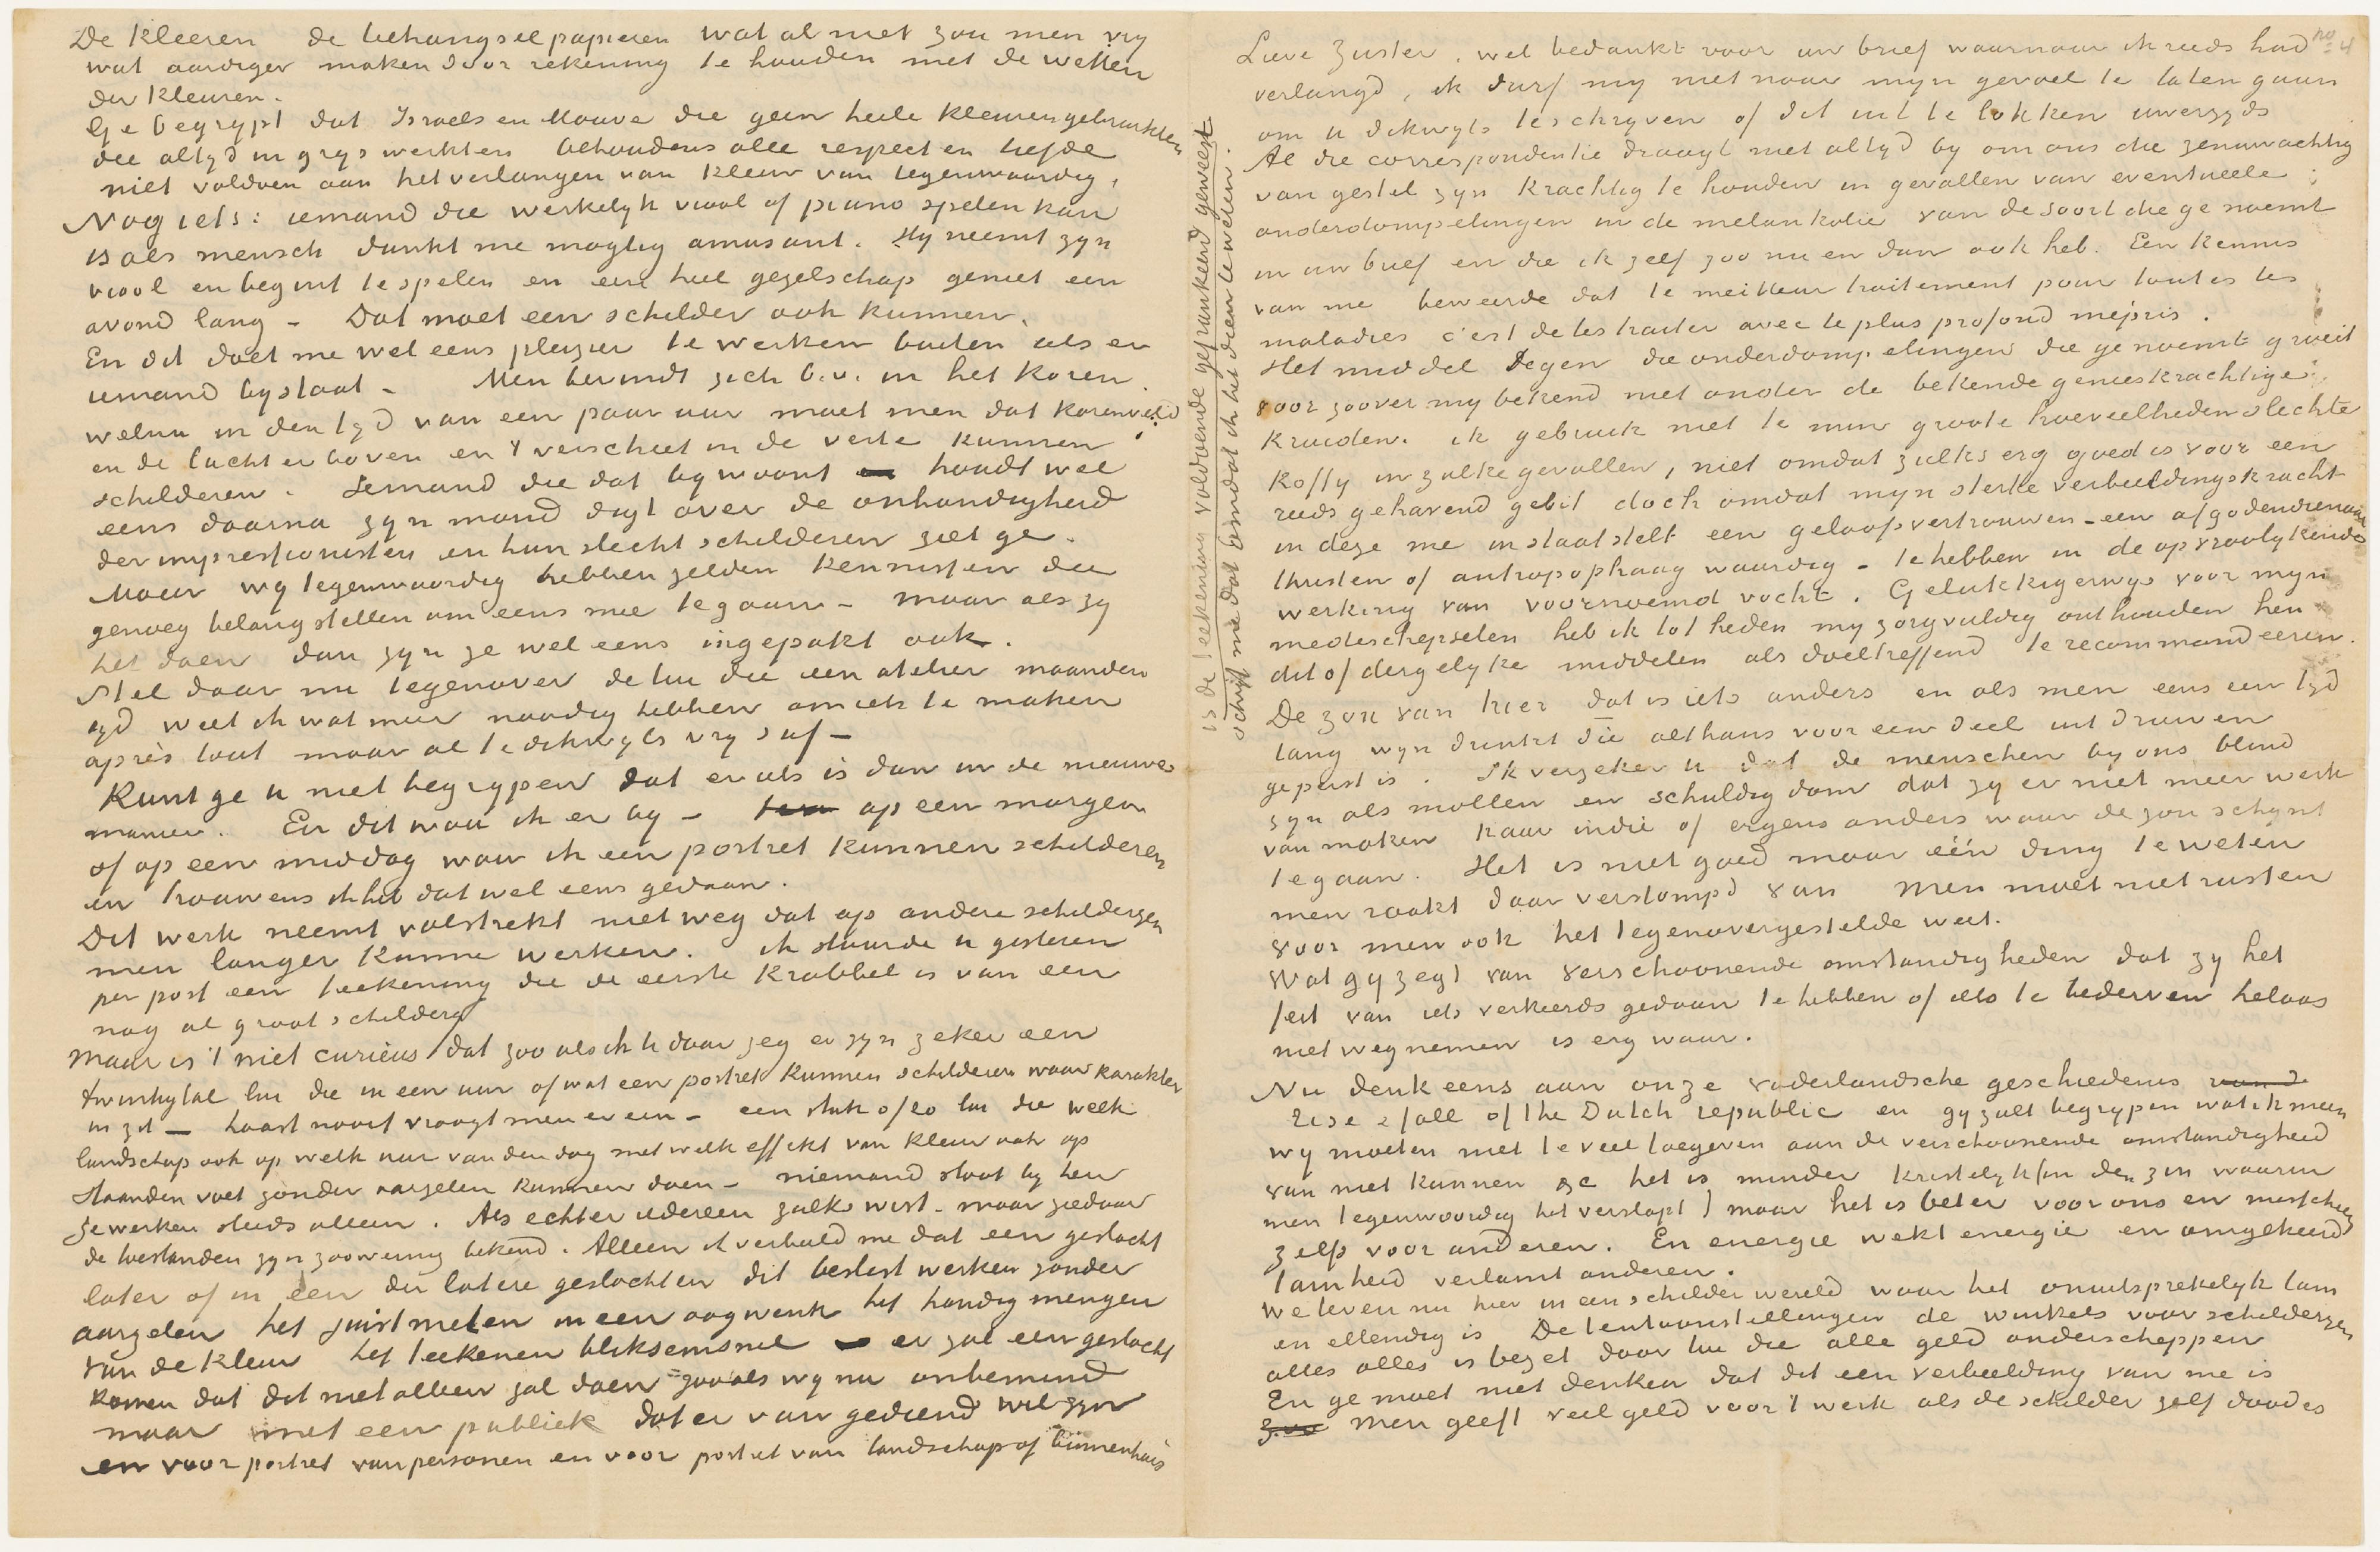 De kleeren de behangselpapieren wat al niet zou men vrij
wat aardiger maken door rekening te houden met de wetten
der kleuren.
Ge begrijpt dat Israels en Mauve die geen heele kleuren gebruikten
die altijd in grijs werkten behoudens alle respect en liefde
niet voldoen aan het verlangen van kleur van tegenwoordig.
Nog iets: iemand die werkelijk viool of piano spelen kan
is als mensch dunkt me magtig amusant. Hij neemt zijn
viool en begint te spelen en een heel gezelschap geniet een
avond lang – Dat moet een schilder ook kunnen.
En dit doet me wel eens pleizier te werken buiten als er
iemand bijstaat – Men bevindt zich b.v. in het koren.
welnu in den tijd van een paar uur moet men dat korenveld
en de lucht er boven en 't verschiet in de verte kunnen
schilderen. Iemand die dat bijwoont houdt wel
eens daarna zijn mond digt over de onhandigheid
der impressionisten en hun slecht schilderen ziet ge.
Maar wij tegenwoordig hebben zelden kennissen die
genoeg belangstellen om eens mee te gaan – maar als zij
het doen dan zijn ze wel eens ingepakt ook.
Stel daar nu tegenover de lui die een atelier maanden
tijd weet ik wat meer noodig hebben om iets te maken
après tout maar al te dikwijls vrij saf –
Kunt ge u niet begrijpen dat er als is dan in de nieuwe
manier. En dit wou ik er bij – op een morgen
of op een middag wou ik een portret kunnen schilderen
en trouwens ik heb dat wel eens gedaan.
Dit werk neemt volstrekt niet weg dat op andere schilderijen
men langer kunne werken. ik stuurde u gisteren
per post een teekening die de eerste krabbel is van een
nog al groot schilderij
maar is 't niet curieus dat zoo als ik u daar zeg er zijn zeker een
twinkytal lui die in een uur of wat een portret kunnen schilderen waar karakter
in zit – haast nooit vraagt men er een – een stuk of 20 lui die welk
landschap ook op welk uur van den dag met welk effekt van kleur ook op
staanden voet zonder aarzelen kunnen doen – niemand staat bij hen
ze werken steeds alleen. Als echter iedereen zulks wist – maar ziedaar
de toestanden zijn zoo weinig bekend. Alleen ik verbeeld me dat een geslacht
later of in een der latere geslachten dit beslist werken zonder
aarzelen het juist meten in een oogwenk het handig mengen
van de kleur het teekenen bliksemsnel – er zal een geslacht
komen dat dit niet alleen zal doen zooals wij nu onbemind
maar met een publiek dat er van gediend wil zijn
en voor portret van personen en voor portret van landschap of binnenhuis
is de teekening voldoende gefrankeerd geweest
schrijf me dat omdat ik het dien te weten.
no 4
Lieve Zuster, wel bedankt voor uw brief waarnaar ik reeds had
verlangd, ik durf mij niet naar mijn gevoel te laten gaan
om u dikwijls te schrijven of dit uit te lokken uwerzijds
Al die correspondentie draagt niet altijd bij om ons die zenuwachtig
van gestel zijn krachtig te houden in gevallen van eventueele
onderdompelingen in de melankolie van de soort die ge noemt
in uw brief en die ik zelf zoo nu en dan ook heb. Een kennis
van me beweerde dat le meilleur traitement pour toutes les
maladies c'est de les traiter avec le plus profond mépris.
Het middel tegen die onderdompelingen die ge noemt groeit
voor zoover mij bekend niet onder de bekende geneeskrachtige
kruiden. ik gebruik niet te min groote hoeveelheden slechte
koffy in zulke gevallen, niet omdat zulks erg goed is voor een
reeds gehavend gebit doch omdat mijn sterke verbeeldingskracht
in deze me in staat stelt een geloofsvertrouwen – een afgodendienaar
Christen of antropophaag waardig – te hebben in de opvroolijkende
werking van voornoemd vocht. Gelukkigerwijs voor mijn
medeschepselen heb ik tot heden mij zorgvuldig onthouden hen
dit of dergelyke middelen als doeltreffend te recommandeeren.
De zon van hier dat is iets anders en als men eens een tijd
lang wijn drinkt die althans voor een deel uit druiven
geperst is. Ik verzeker u dat de menschen bij ons blind
zijn als mollen en schuldig dom dat zij er niet meer werk
van maken naar indie of ergens anders waar de zon schijnt
te gaan. Het is niet goed maar één ding te weten
men raakt daar verstompt van men moet niet rusten
voor men ook het tegenovergestelde weet.
Wat gij zegt van verschoonende omstandigheden dat zij het
feit van iets verkeerds gedaan te hebben of iets te bederven helaas
niet wegnemen is erg waar.
Nu denk eens aan onze vaderlandsche geschiedenis
rise & fall of the Dutch republic en gij zult begrijpen wat ik meen
wij moeten niet te veel toegeven aan de verschoonende omstandigheid
van niet kunnen &c het is minder kristelijk (in den zin waarin
men tegenwoordig het verslapt) maar het is beter voor ons en misschien
zelfs voor anderen. En energie wekt energie en omgekeerd
lamheid verlamt anderen.
We leven nu hier in een schilder wereld waar het onuitsprekelijk lam
en ellendig is De tentoonstellingen de winkels voor schilderijen
alles alles is bezet door lui die alle geld onderscheppen
En ge moet niet denken dat dit een verbeelding van me is
men geeft veel geld voor 't werk als de schilder zelf dood is